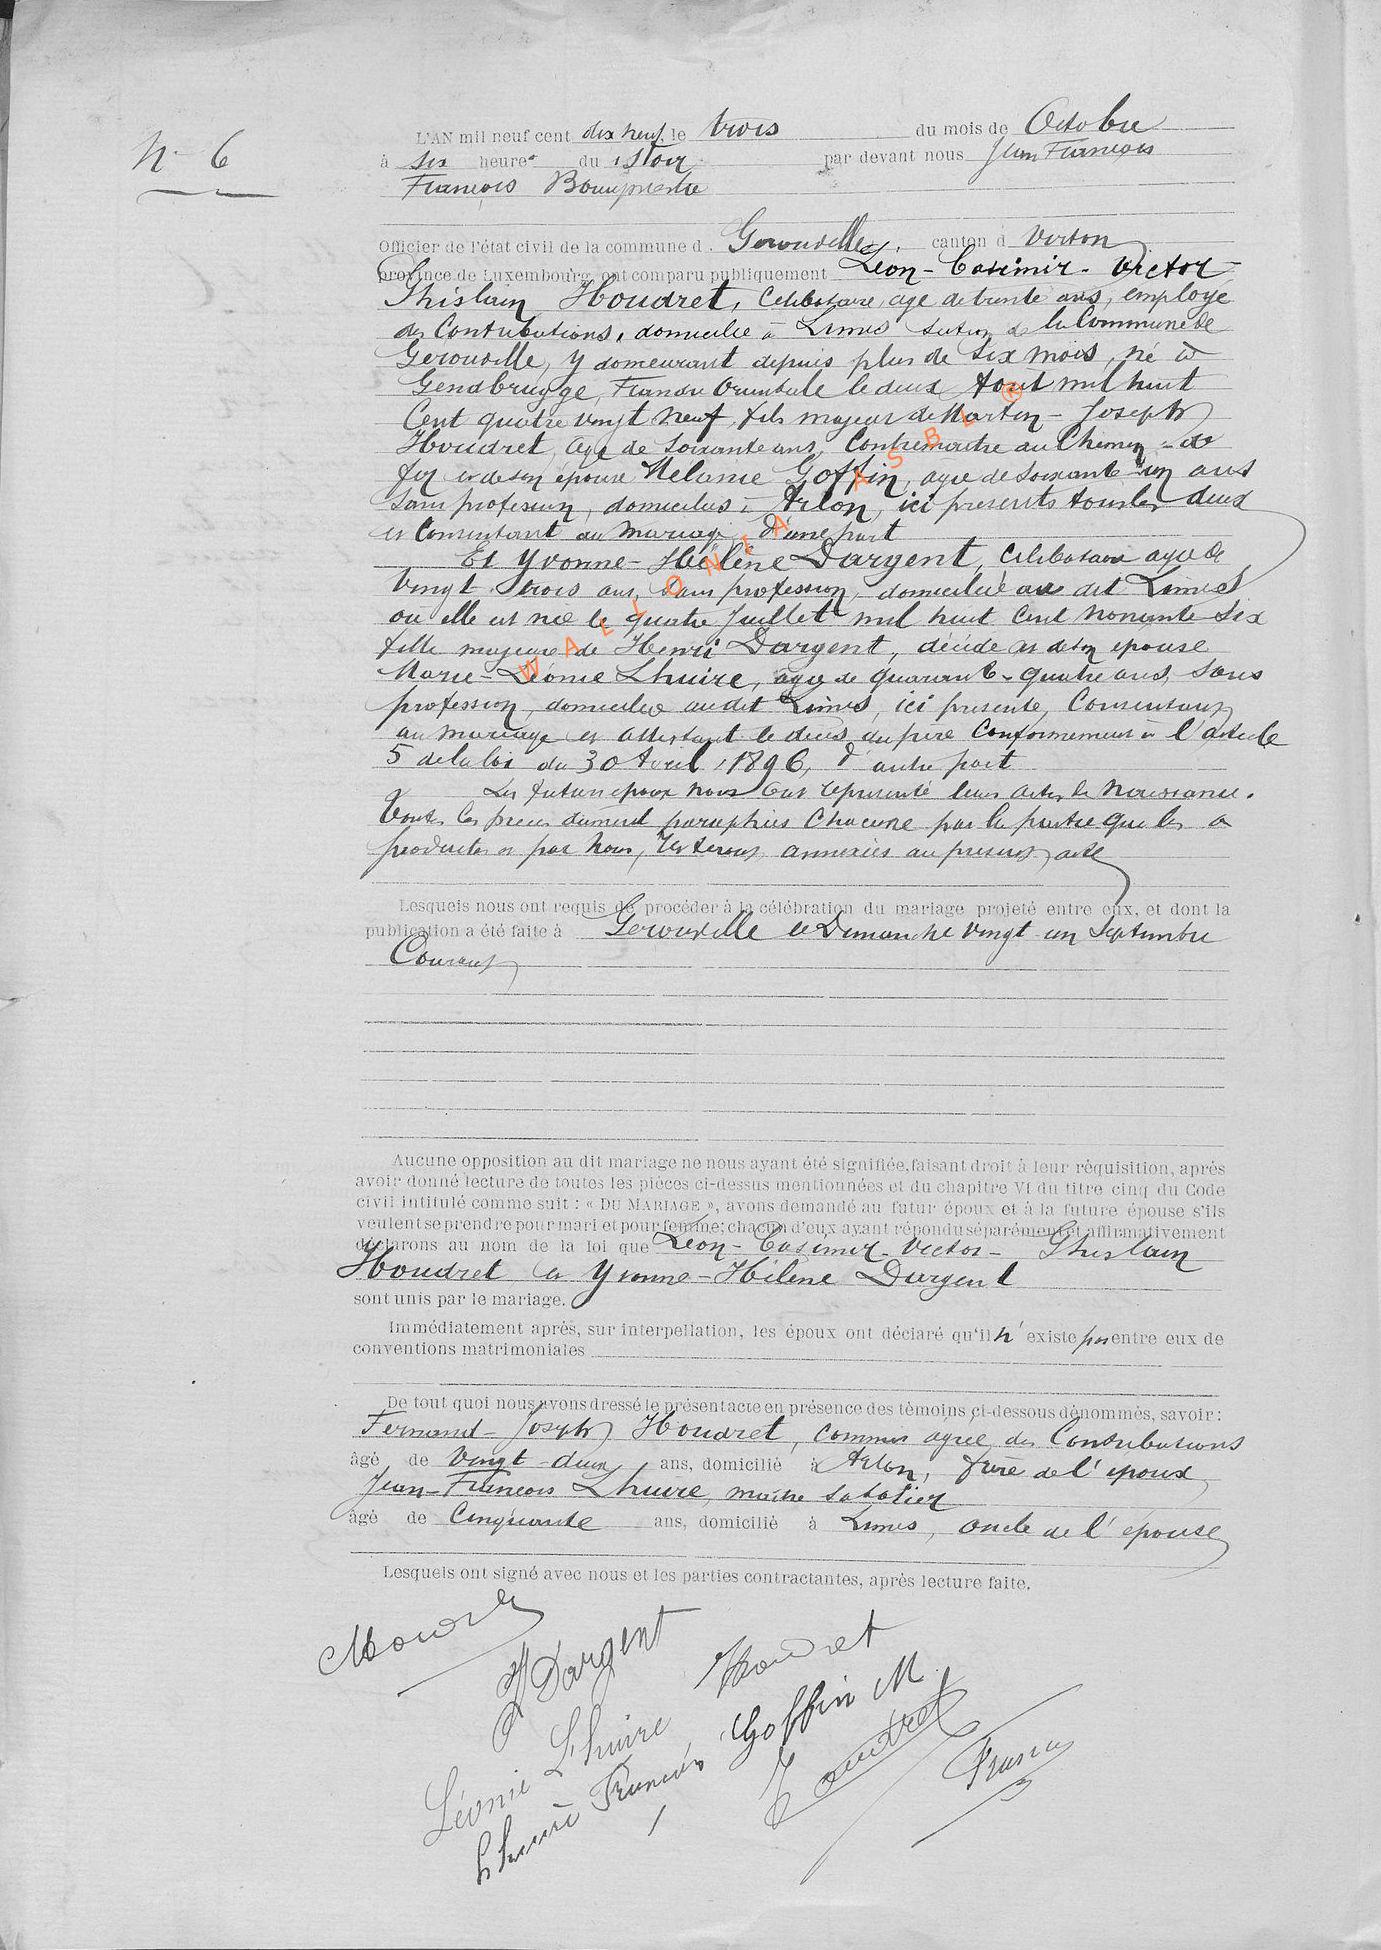 N° 6
L'AN mil neuf cent dix neuf, le trois du mois de Octobre
à six heures du soir par devant nous Jean François
François
Officier de l'état civil de la commune d. Gerouville, canton d Virton
province de Luxembourg, ont comparu publiquement Léon-Casimir-Victor
Ghislain Houdret, Célibataire, agé de trente ans, employé
des Contributions, domicilié à Limes section de la Commune de
Gerouville, y demeurant depuis plus de six mois, né à
Gendbrugge, Flandre Orientale le deux Aout mil huit
Cent quatre vingt neuf, fils majeur de Martin-Joseph
Houdret, agé de soixante ans, Contremaitre au Chemin de
fer et de son épouse Mélanie Goffin, agée de soixante-un ans
sans profession, domiciliés à Arlon, ici présents tous les deux
et Consentant au mariage, d'une part
Et Yvonne-Hélène Dargent, célibataire agée de
vingt trois ans, sans profession, domiciliée au dit Limes
où elle est née le quatre Juillet mil huit cent nonante six
fille majeure de Henri Dargent, décédé et de son épouse
Marie-Léonie Lhuire, agée de quarante-quatre ans, sans
profession, domiciliée au dit Limes, ici présente, Consentant
au mariage et attestant le décès du père Conformément à l'article
5 de la loi du 30 Avril 1896, d'autre part
Les futurs époux nous ont représenté leurs actes de Naissance.
Toutes les pièces dument paraphées chacune par la partie qui les a
produites et par nous, resteront annexées au présent acte
Lesquels nous ont requis de procéder à la célébration du mariage projeté entre eux, et dont la
publication a été faite à Gerouville le Dimanche vingt un Septembre
Courant
Aucune opposition au dit mariage ne nous ayant été signifiée, faisant droit à leur réquisition, après
avoir donné lecture de toutes les pièces ci-dessus mentionnées et du chapitre VI du titre cinq du Code
civil intitulé comme suit : « DU MARIAGE », avons demandé au futur époux et à la future épouse s'ils
veulent se prendre pour mari et pour femme; chacun d'eux ayant répondu séparément et affirmativement
déclarons au nom de la loi que Léon-Casimir-Victor-Ghislain
Houdret et Yvonne-Hélène Dargent
sont unis par le mariage.
Immédiatement après, sur interpellation, les époux ont déclaré qu'il n'existe pas entre eux de
conventions matrimoniales
De tout quoi nous avons dressé le présent acte en présence des témoins ci-dessous dénommés, savoir :
Fernand-Joseph Houdret, commis agréé des Contributions
âgé de vingt-deux ans, domicilié à Arlon, frère de l'époux
Jean-François Lhuire, maitre sabotier
âgé de Cinquante ans, domicilié à Limes, oncle de l'épouse
Lesquels ont signé avec nous et les parties contractantes, après lecture faite.
Y Dargent
Houdret
Léonie Lhuire
Goffin M
Lhuire François
Houdret
WALLONIA ASBL ®